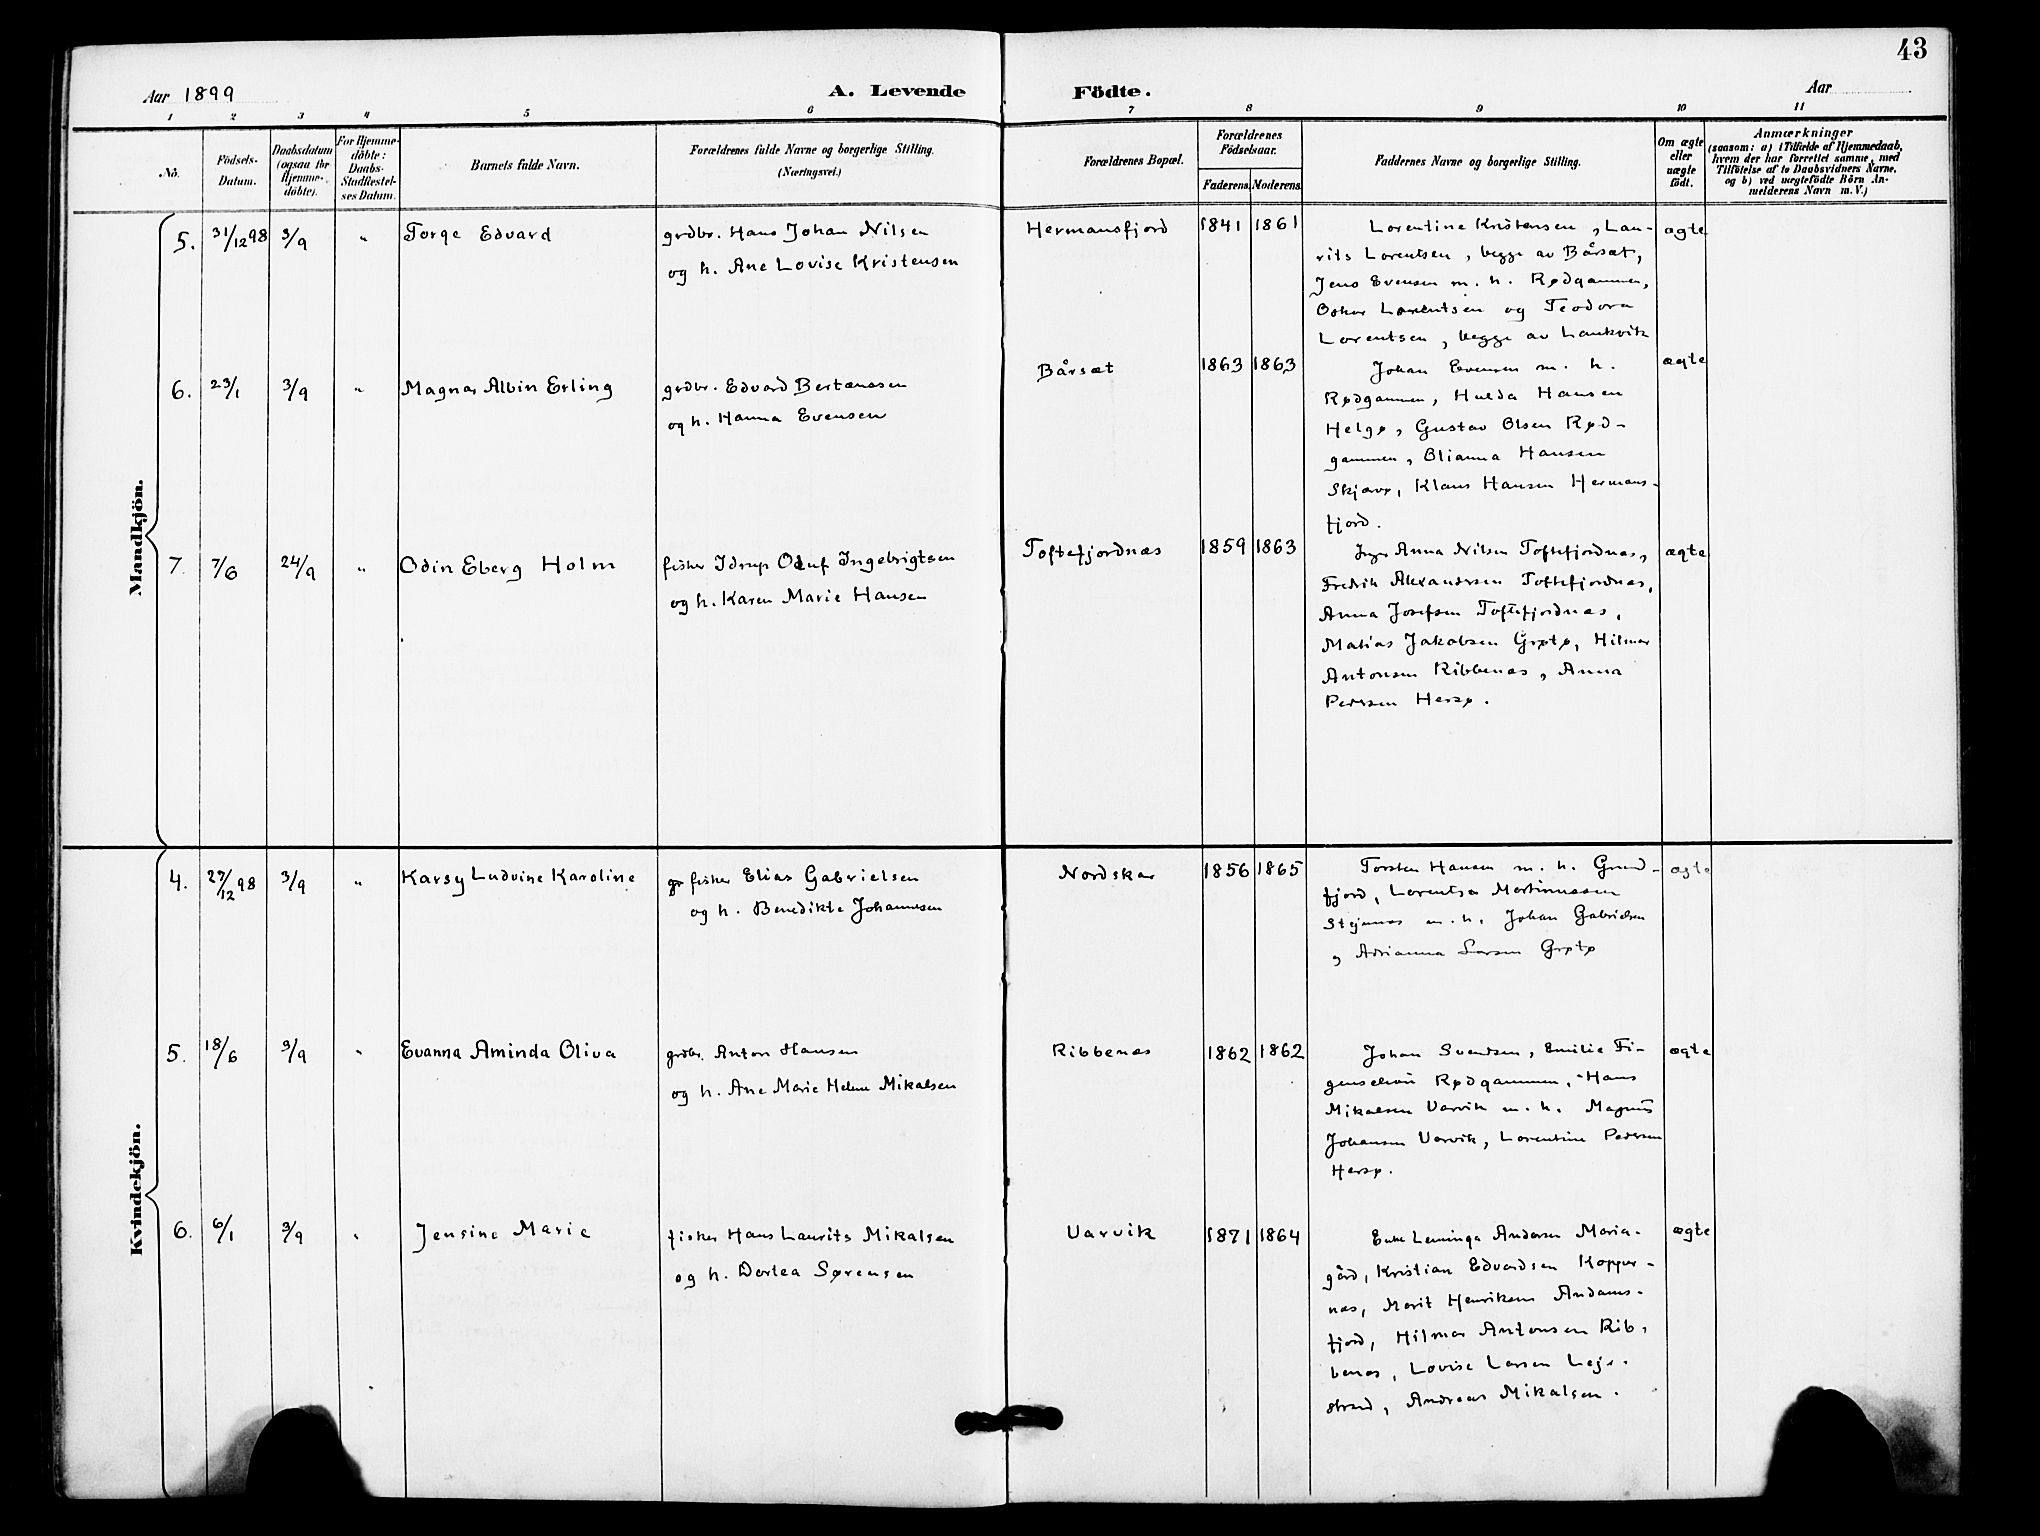 43
Aar 1899
A. Levende Födte.
Aar
1 2 3 4 5 6 7 8 9 10 11
No.
Födsels-
Datum.
Daabsdatum
(ogsaa for
Hjemme-
døbte).
For Hjemme-
døbte:
Daabs-
Stadfestel-
ses Datum.
Barnets fulde Navn.
Forældrenes fulde Navne og borgerlige Stilling.
(Næringsvei.)
Forældrenes Bopæl.
Forældrenes
Födselsaar.
Faderens. Moderens.
Faddernes Navne og borgerlige Stilling.
Om ægte
eller
uægte
födt.
Anmærkninger
(saasom: a) i Tilfælde af Hjemmedaab,
hvem der har forrettet samme, med
Tilföielse af to Daabsvidners Navne,
og b) ved uægtefödte Börn An-
melderens Navn m. V.)
Mandkjön.
5. 31/12 98 3/9 " Torge Edvard
grdbr. Hans Johan Nilsen
og h. Ane Lovise Kristensen
Hermansfjord 1841 1861
Lorentine Kristensen, Lau-
rits Lorentsen, begge av Bårsæt,
Jens Evensen m. h. Rødgammen,
Oskar Lorentsen og Teodora
Lorentsen, begge av Laukvik
ægte
6. 23/1 3/9 " Magnar Albin Erling
grdbr. Edvard Bertanssen
og h. Hanna Evensen
Bårsæt 1863 1863
Johan Evensen m. h.
Rødgammen, Hulda Hansen
Helgø, Gustav Olsen Rød-
gammen, Olianna Hansen
Skjærvø, Klaus Hansen Hermans-
fjord.
ægte
7. 7/6 24/9 " Odin Eberg Holm
fisker Idrup Oluf Ingebrigtsen
og h. Karen Marie Hansen
Toftefjordnæs 1859 1863
Inger Anna Nilsen Toftefjordnæs,
Fredrik Alexandersen Toftefjordnæs,
Anna Josefsen Toftefjordnæs,
Matias Jakobsen Grøtø, Hilmar
Antonsen Ribbenæs, Anna
Pedersen Hersø.
ægte
Kvindekjön.
4. 27/12 98 3/9 " Karsy Ludvine Karoline
fisker Elias Gabrielsen
og h. Benedikte Johannesen
Nordskar 1856 1865
Torsten Hansen m. h. Grund-
fjord, Lorentsa Martinussen
m. h. Johan Gabrielsen
, Adrianna Larsen Grøtø
ægte
5. 18/6 3/9 " Evanna Aminda Oliva
grdbr. Anton Hansen
og h. Ane Marie Helene Mikalsen
Ribbenæs 1862 1862
Johan Svendsen, Emilie Fi-
Rødgammen, Hans
Mikalsen Varvik m. h. Magnus
Johansen Varvik, Lorentine Pedersen
Hersø.
ægte
6. 6/1 3/9 " Jensine Marie
fisker Hans Laurits Mikalsen
og h. Dortea Sørensen
Varvik 1871 1864
Enke Andersen Maria-
gård, Kristian Edvardsen Kopper-
næs, Marit Henriksen Andams-
fjord, Hilmar Antonsen Rib-
benæs, Lovise Larsen Leje-
strand, Andreas Mikalsen.
ægte